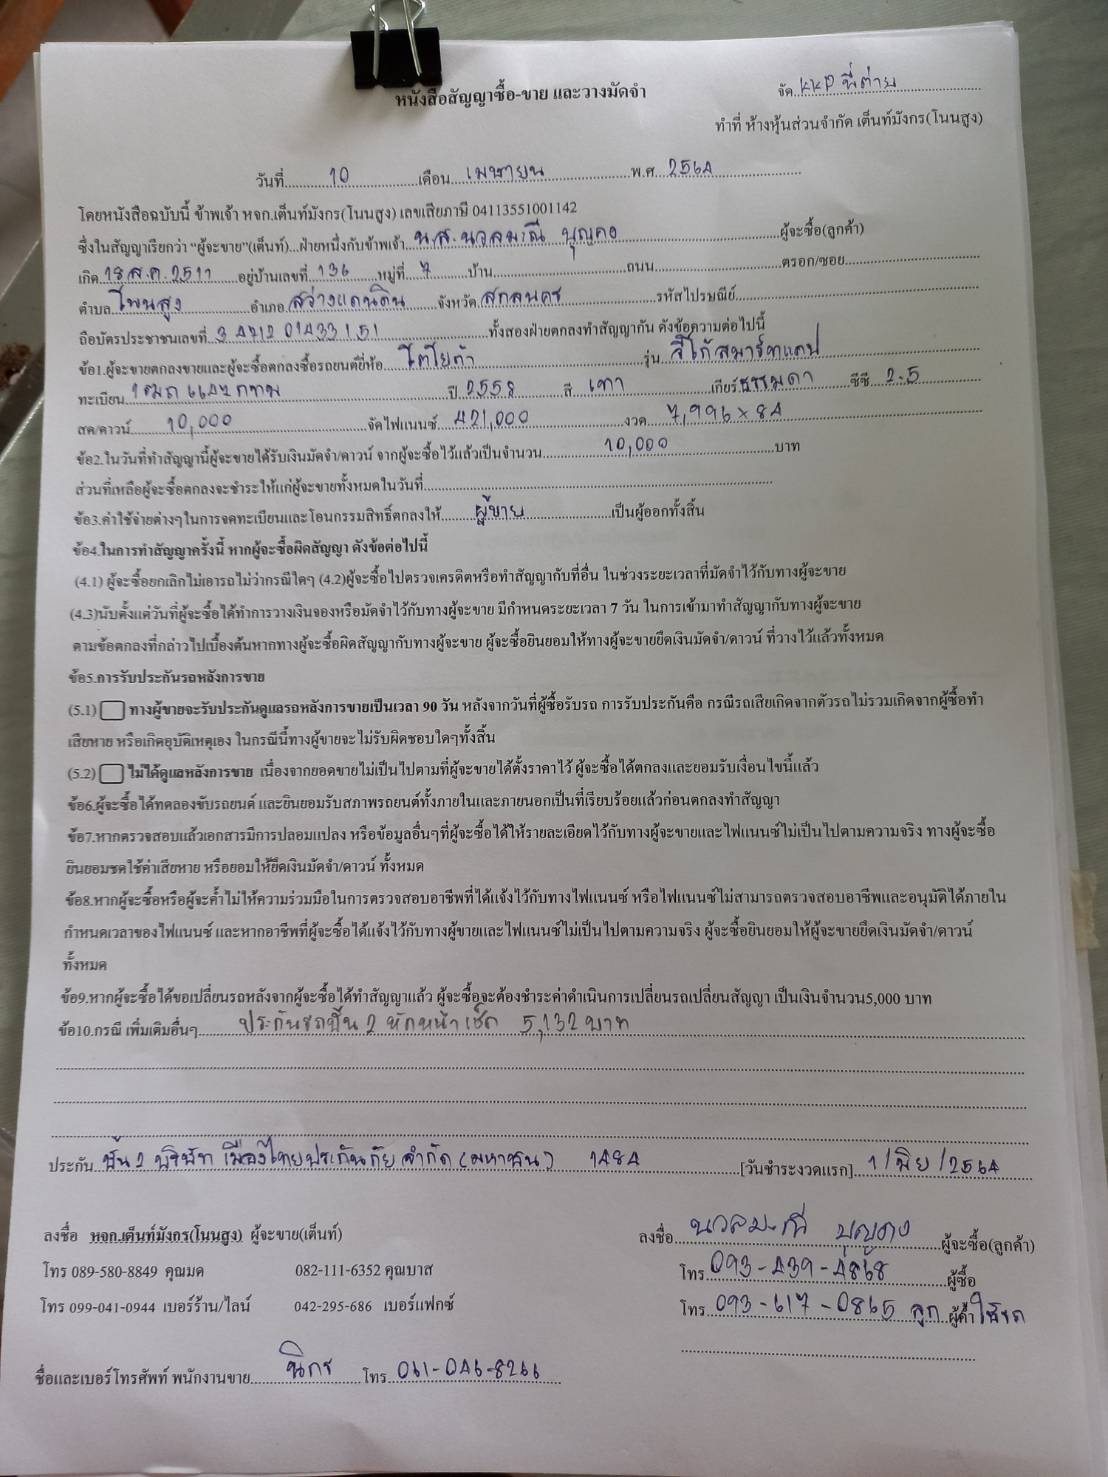 หนังสือสัญญาซื้อ-ขาย และวางมัดจำ
จัด KKP พี่ต่าย
ทำที่ ห้างหุ้นส่วนจำกัด เต็นท์มังกร(โนนสูง)
วันที่ 10 เดือน เมษายน พ.ศ. 2564
โดยหนังสือฉบับนี้ ข้าพเจ้า หจก.เต็นท์มังกร(โนนสูง) เลขเสียภาษี 04113551001142
ซึ่งในสัญญาเรียกว่า "ผู้จะขาย"(เต็นท์)...ฝ่ายหนึ่งกับข้าพเจ้า น.ส. นวลมณี บุญคง ผู้จะซื้อ(ลูกค้า)
เกิด 18 ส.ค. 2511 อยู่บ้านเลขที่ 136 หมู่ที่ 7 บ้าน ถนน ตรอก/ซอย
ตำบล โพนสูง อำเภอ สว่างแดนดิน จังหวัด สกลนคร รหัสไปรษณีย์
ถือบัตรประชาชนเลขที่ 3 4712 01433 151 ทั้งสองฝ่ายตกลงทำสัญญากัน ดังข้อความต่อไปนี้
ข้อ1.ผู้จะขายตกลงขายและผู้จะซื้อตกลงซื้อรถยนต์ยี่ห้อ โตโยต้า รุ่น วีโก้สมาร์ทแคป
ทะเบียน 1ฒถ 6647 กทม ปี 2558 สี เทา เกียร์ ธรรมดา ซีซี 2.5
สด/ดาวน์ 10,000 จัดไฟแนนซ์ 421,000 งวด 7,996 x 84
ข้อ2.ในวันที่ทำสัญญานี้ผู้จะขายได้รับเงินมัดจำ/ดาวน์ จากผู้จะซื้อไว้แล้วเป็นจำนวน 10,000 บาท
ส่วนที่เหลือผู้จะซื้อตกลงจะชำระให้แก่ผู้จะขายทั้งหมดในวันที่
ข้อ3.ค่าใช้จ่ายต่างๆในการจดทะเบียนและโอนกรรมสิทธิ์ตกลงให้ ผู้ขาย เป็นผู้ออกทั้งสิ้น
ข้อ4.ในการทำสัญญาครั้งนี้ หากผู้จะซื้อผิดสัญญา ดังข้อต่อไปนี้
(4.1) ผู้จะซื้อยกเลิกไม่เอารถไม่ว่ากรณีใดๆ (4.2)ผู้จะซื้อไปตรวจเครดิตหรือทำสัญญากับที่อื่น ในช่วงระยะเวลาที่มัดจำไว้กับทางผู้จะขาย
(4.3)นับตั้งแต่วันที่ผู้จะซื้อได้ทำการวางเงินจองหรือมัดจำไว้กับทางผู้จะขาย มีกำหนดระยะเวลา 7 วัน ในการเข้ามาทำสัญญากับทางผู้จะขาย
ตามข้อตกลงที่กล่าวไปเบื้องต้นหากทางผู้จะซื้อผิดสัญญากับทางผู้จะขาย ผู้จะซื้อยินยอมให้ทางผู้จะขายยึดเงินมัดจำ/ดาวน์ ที่วางไว้แล้วทั้งหมด
ข้อ5.การรับประกันรถหลังการขาย
(5.1) ทางผู้ขายจะรับประกันดูแลรถหลังการขายเป็นเวลา 90 วัน หลังจากวันที่ผู้ซื้อรับรถ การรับประกันคือ กรณีรถเสียเกิดจากตัวรถไม่รวมเกิดจากผู้ซื้อทำ
เสียหาย หรือเกิดอุบัติเหตุเอง ในกรณีนี้ทางผู้ขายจะไม่รับผิดชอบใดๆทั้งสิ้น
(5.2) ไม่ได้ดูแลหลังการขาย เนื่องจากยอดขายไม่เป็นไปตามที่ผู้จะขายได้ตั้งราคาไว้ ผู้จะซื้อได้ตกลงและยอมรับเงื่อนไขนี้แล้ว
ข้อ6.ผู้จะซื้อได้ทดลองขับรถยนต์ และยินยอมรับสภาพรถยนต์ทั้งภายในและภายนอกเป็นที่เรียบร้อยแล้วก่อนตกลงทำสัญญา
ข้อ7.หากตรวจสอบแล้วเอกสารมีการปลอมแปลง หรือข้อมูลอื่นๆที่ผู้จะซื้อได้ให้รายละเอียดไว้กับทางผู้จะขายและไฟแนนซ์ไม่เป็นไปตามความจริง ทางผู้จะซื้อ
ยินยอมชดใช้ค่าเสียหาย หรือยอมให้ยึดเงินมัดจำ/ดาวน์ ทั้งหมด
ข้อ8.หากผู้จะซื้อหรือผู้จะค้ำไม่ให้ความร่วมมือในการตรวจสอบอาชีพที่ได้แจ้งไว้กับทางไฟแนนซ์ หรือไฟแนนซ์ไม่สามารถตรวจสอบอาชีพและอนุมัติได้ภายใน
กำหนดเวลาของไฟแนนซ์ และหากอาชีพที่ผู้จะซื้อได้แจ้งไว้กับทางผู้ขายและไฟแนนซ์ไม่เป็นไปตามความจริง ผู้จะซื้อยินยอมให้ผู้จะขายยึดเงินมัดจำ/ดาวน์
ทั้งหมด
ข้อ9.หากผู้จะซื้อได้ขอเปลี่ยนรถหลังจากผู้จะซื้อได้ทำสัญญาแล้ว ผู้จะซื้อจะต้องชำระค่าดำเนินการเปลี่ยนรถเปลี่ยนสัญญา เป็นเงินจำนวน5,000 บาท
ข้อ10.กรณี เพิ่มเติมอื่นๆ ประกันรถชั้น 2 หักหน้าเช็ค 5,132 บาท
ประกัน ชั้น 2 บริษัท เมืองไทยประกันภัย จำกัด (มหาชน) 1484 [วันชำระงวดแรก] 1/มิย/2564
ลงชื่อ หจก.เต็นท์มังกร(โนนสูง) ผู้จะขาย(เต็นท์)
ลงชื่อ นวลมณี บุญคง ผู้จะซื้อ(ลูกค้า)
โทร 089-580-8849 คุณมด 082-111-6352 คุณบาส
โทร 093-439-4868 ผู้ซื้อ
โทร 099-041-0944 เบอร์ร้าน/ไลน์ 042-295-686 เบอร์แฟกซ์
โทร 093-617-0865 ลูก ผู้ค้ำ ใช้รถ
ชื่อและเบอร์โทรศัพท์ พนักงานขาย นิกร โทร 061-046-8266